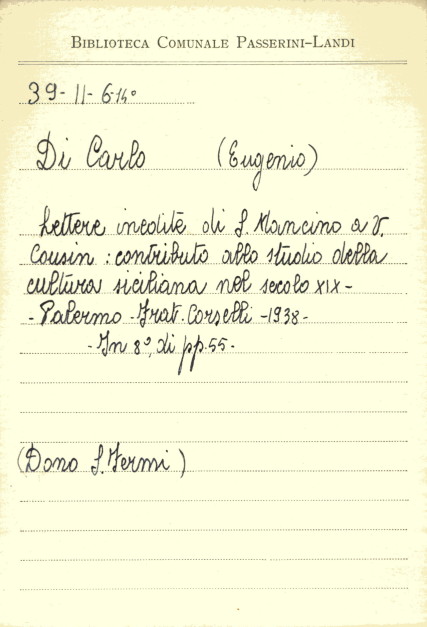 BIBLIOTECA COMUNALE PASSERINI-LANDI
39-11-6-14°
Di Carlo (Eugenio)
Lettere inedite di S. Mancino a V.
Cousin : contributo allo studio della
cultura siciliana nel secolo XIX-
- Palermo - Frat. Corselli - 1938 -
- In 8°, di pp. 55 -
(Dono S. Fermi)